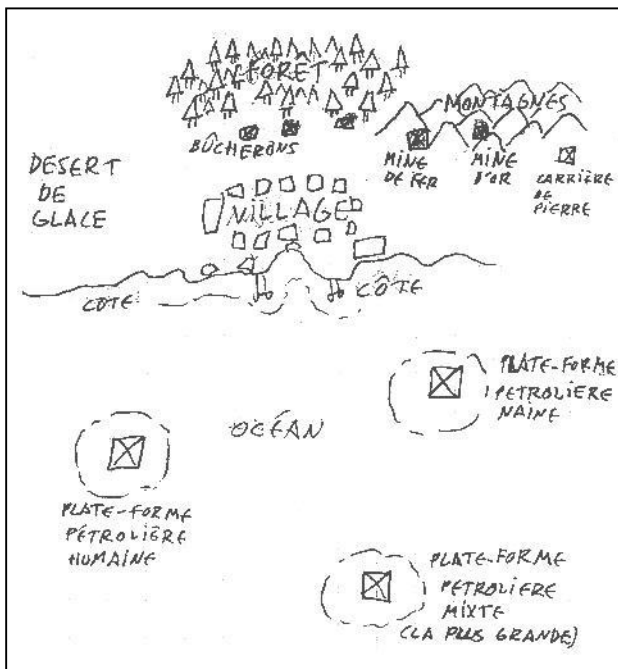 FORÊT
MONTAGNES
BÛCHERONS
MINE
DE FER
MINE
D'OR
CARRIÈRE
DE
PIERRE
DESERT
DE
GLACE
VILLAGE
COTE
CÔTE
PLATE-FORME
PETROLIÈRE
NAINE
OCÉAN
PLATE-FORME
PÉTROLIÈRE
HUMAINE
PLATE-FORME
PETROLIERE
MIXTE
(LA PLUS GRANDE)